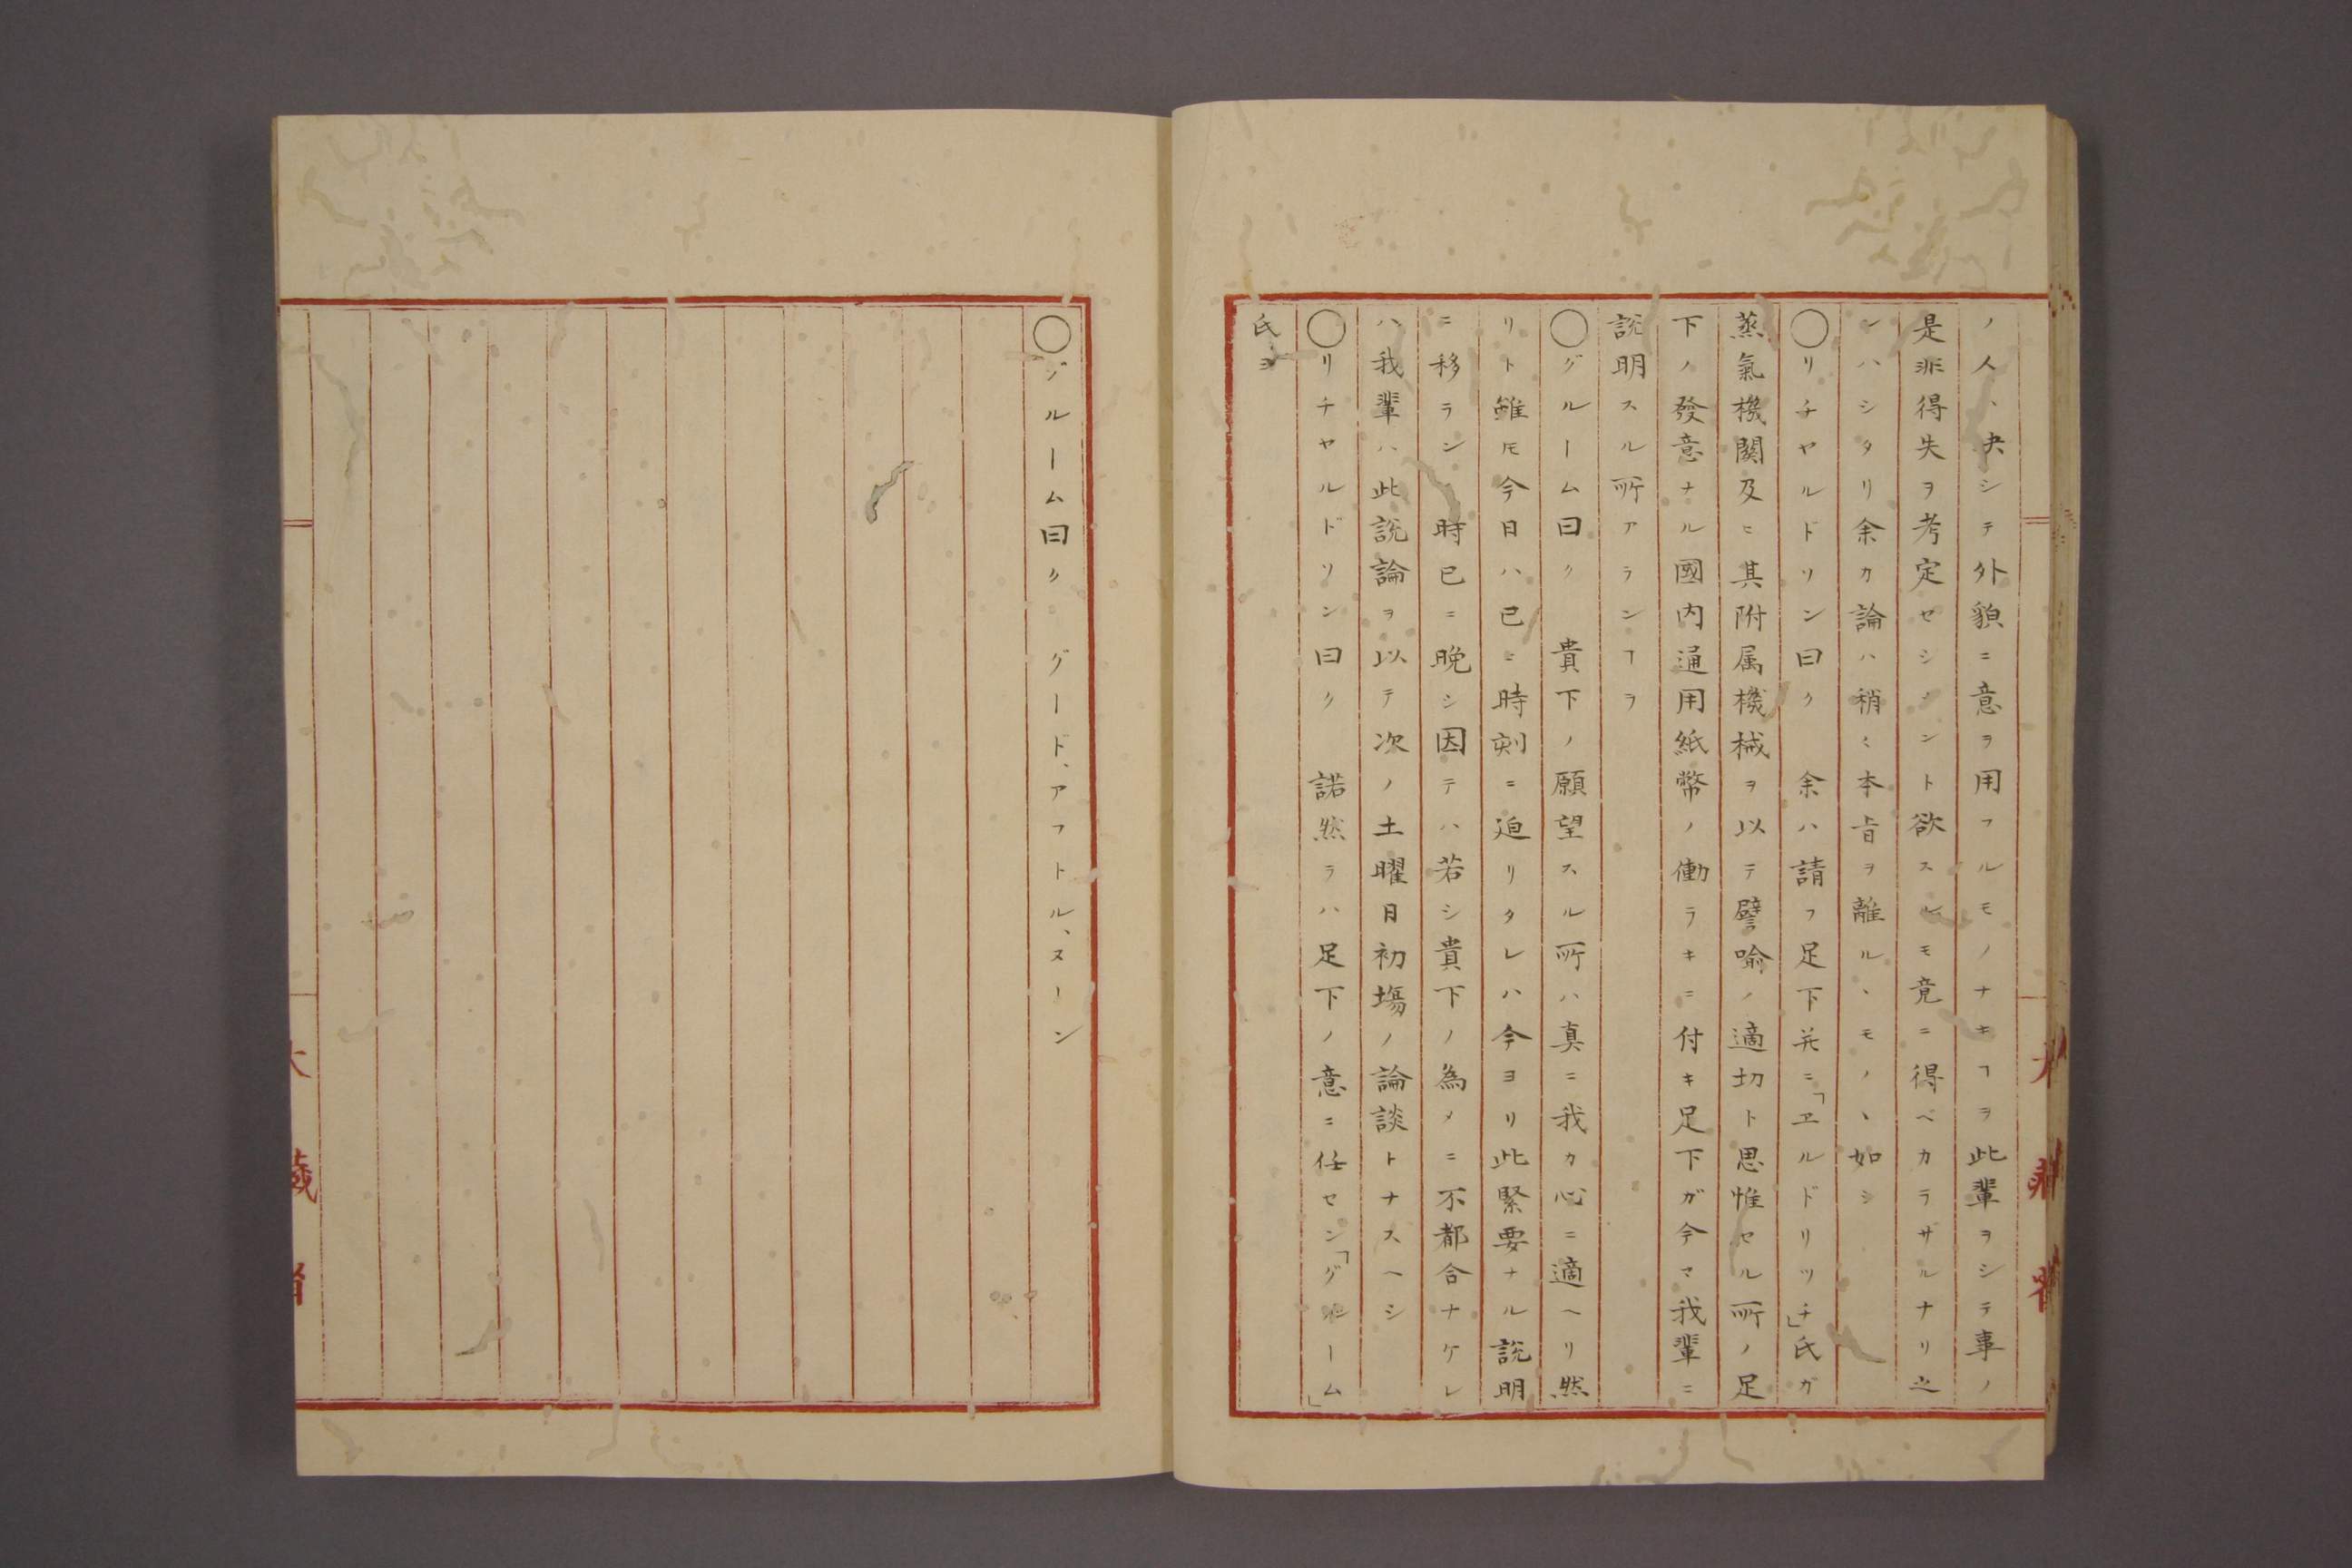 ノ人、決シテ外貌ニ意ヲ用フルモノナキヿヲ此輩ヲシテ事ノ
是非得失ヲ考定セシメント欲スルモ竟ニ得ベカラザルナリ之
レハシタリ余カ論ハ稍〻本旨ヲ離ルヽモノヽ如シ
◯リチヤルドソン曰ク　余ハ請フ足下幷ニ「ヱルドリツチ」氏ガ
蒸氣機關及ヒ其附属機械ヲ以テ譬喩ノ適切ト思惟セル所ノ足
下ノ發意ナル國内通用紙幣ノ働ラキニ付キ足下ガ今マ我輩ニ
説明スル所アランヿヲ
◯グルーム曰ク　貴下ノ願望スル所ハ真ニ我カ心ニ適ヘリ然
リト雖𪜈今日ハ已ニ時刻ニ迫リタレハ今ヨリ此緊要ナル説明
ニ移ラン　時已ニ晩シ因テハ若シ貴下ノ為メニ不都合ナケレ
ハ我輩ハ此説論ヲ以テ次ノ土曜日初塲ノ論談トナスヘシ
◯リチヤルドソン曰ク　諾然ラハ足下ノ意ニ任セン「グルーム」
氏ヨ
◯グルーム曰ク　グード、アフトル、ヌーン
大藏省
大藏省